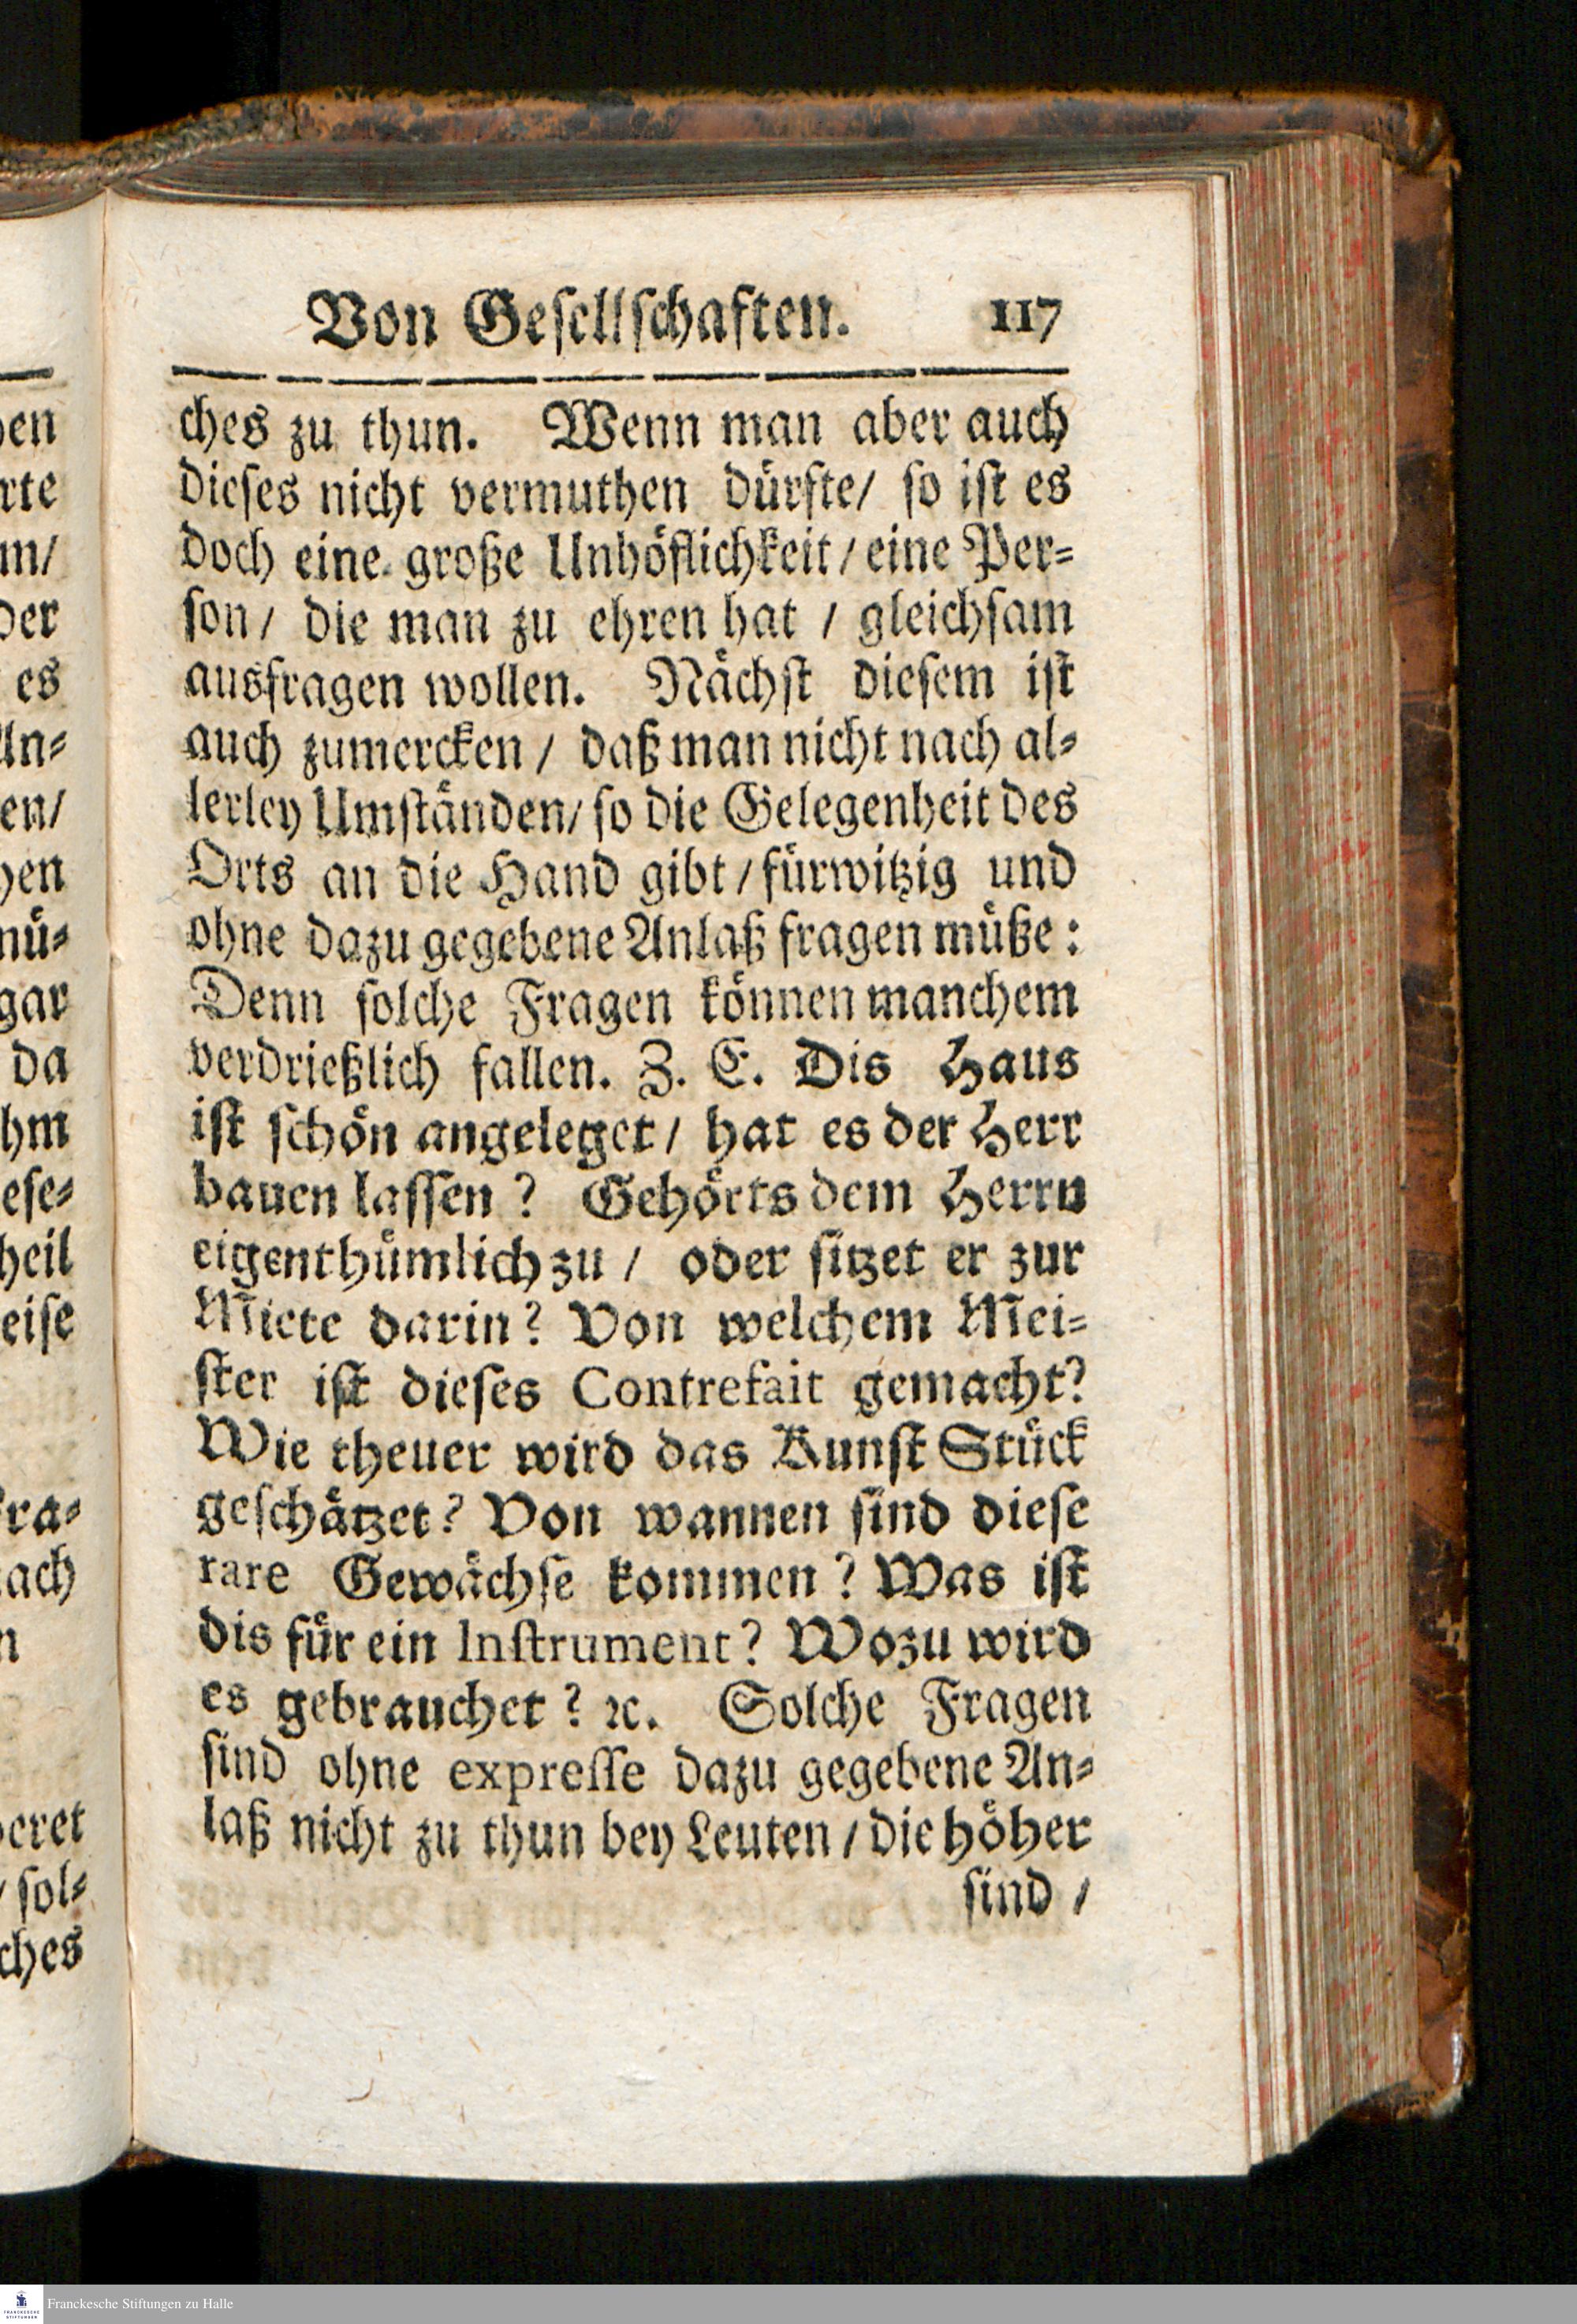 Von Geſellſchaften. 117
ches zu thun. Wenn man aber auch
dieſes nicht vermuthen dürfte/ ſo iſt es
doch eine große Unhöflichkeit/ eine Per⸗
ſon/ die man zu ehren hat / gleichſam
ausfragen wollen. Nächſt dieſem iſt
auch zumercken / daß man nicht nach al⸗
lerley Umſtänden/ ſo die Gelegenheit des
Orts an die Hand gibt / fürwitzig und
ohne dazu gegebene Anlaß fragen müße:
Denn ſolche Fragen können manchem
verdrießlich fallen. Z. E. Dis Haus
iſt ſchön angeleget/ hat es der Herr
bauen laſſen? Gehörts dem Herrn
eigenthümlich zu / oder ſitzet er zur
Miete darin? Von welchem Mei⸗
ſter iſt dieſes Contrefait gemacht?
Wie theuer wird das Kunſt Stück
geſchätzet? Von wannen ſind dieſe
rare Gewächſe kommen? Was iſt
dis für ein Inſtrument? Wozu wird
es gebrauchet? ꝛc. Solche Fragen
ſind ohne expreſſe dazu gegebene An⸗
laß nicht zu thun bey Leuten / die höher
ſind /
en
rte
m/
der
es
An⸗
en/
en
mü⸗
gar
da
hm
eſe⸗
heil
eiſe
ra⸗
ach
n
eret
/ ſol⸗
ches
FRANCKESCHE
STIFTUNGEN
Franckesche Stiftungen zu Halle